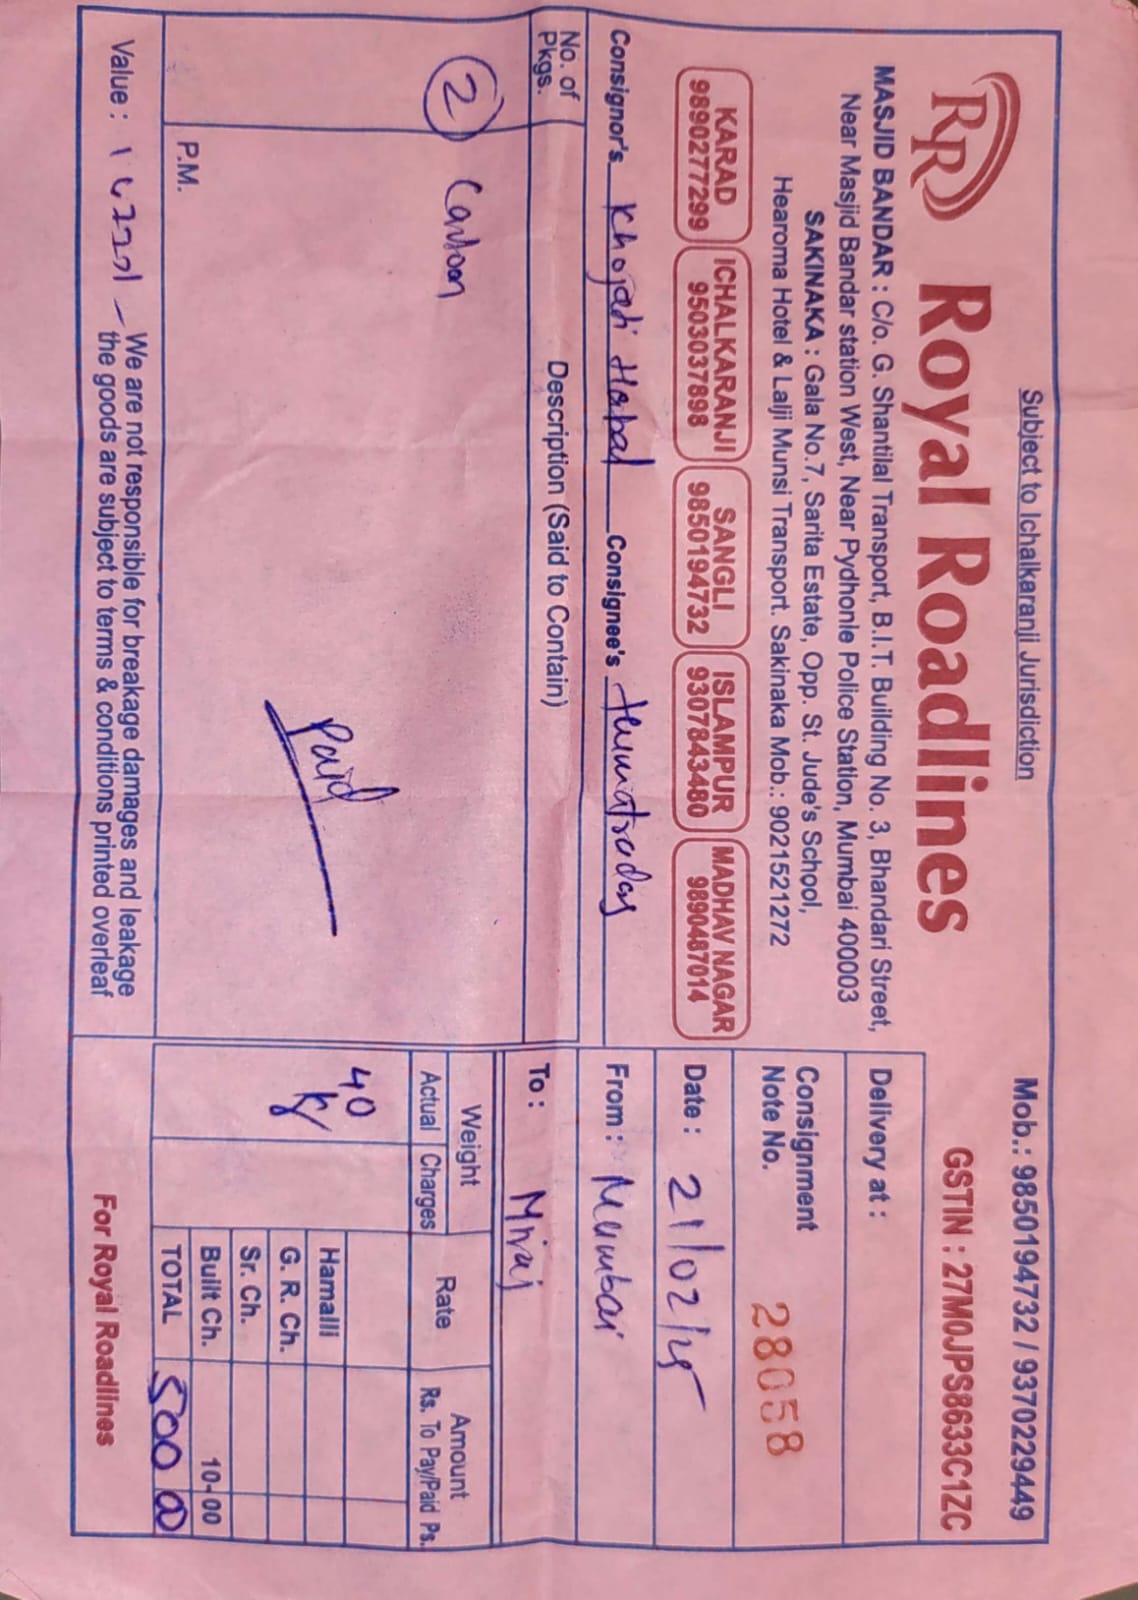 Subject to Ichalkaranji Jurisdiction
Mob.: 9850194732 / 9370229449
RR Royal Roadlines
GSTIN : 27M0JPS8633C1ZC
MASJID BANDAR : C/o. G. Shantilal Transport, B.I.T. Building No. 3, Bhandari Street,
Near Masjid Bandar station West, Near Pydhonle Police Station, Mumbai 400003
SAKINAKA : Gala No.7, Sarita Estate, Opp. St. Jude's School,
Hearoma Hotel & Lalji Munsi Transport. Sakinaka Mob.: 9021521272
KARAD
9890277299
ICHALKARANJI
9503037898
SANGLI
9850194732
ISLAMPUR
9307843480
MADHAV NAGAR
9890487014
Delivery at :
Consignment
Note No.
28058
Date : 21/02/25
Consignor's Khojati Herbal Consignee's
From : Mumbai
To : Miraj
No. of
Pkgs.
Description (Said to Contain)
Weight
Actual Charges
Rate
Amount
Rs. To Pay/Paid Ps.
2 Cartoon
40
kg
Paid
Hamalli
G. R. Ch.
Sr. Ch.
Built Ch. 10-00
TOTAL 500
P.M.
Value :
We are not responsible for breakage damages and leakage
the goods are subject to terms & conditions printed overleaf
For Royal Roadlines